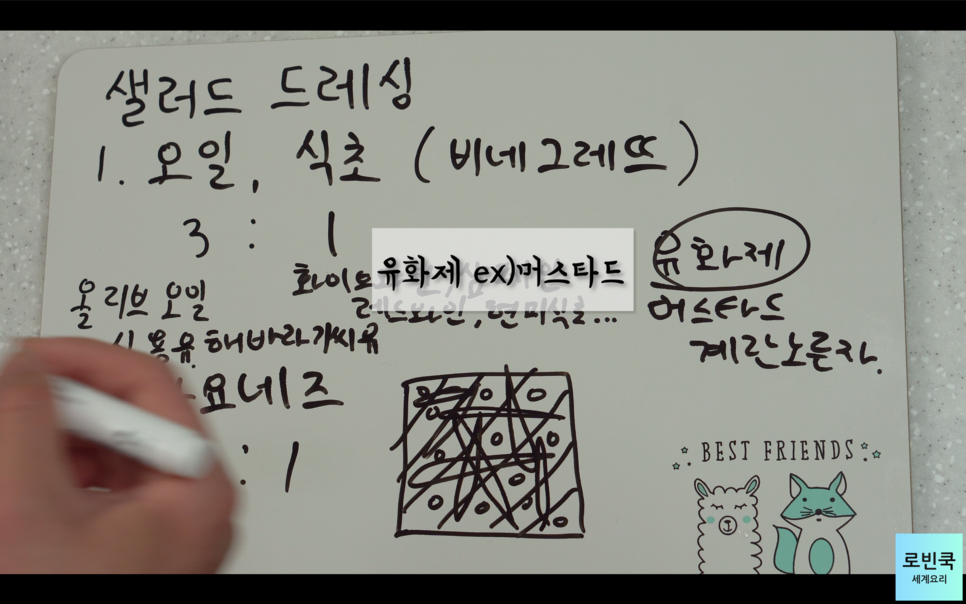 샐러드 드레싱
1. 오일, 식초 (비네그레뜨)
3 : 1
유화제
유화제 ex)머스타드
올리브 오일
화이트
현미식초...
머스타드
식용유, 해바라기씨유
계란노른자.
요네즈
: 1
BEST FRIENDS
로빈쿡
세계요리